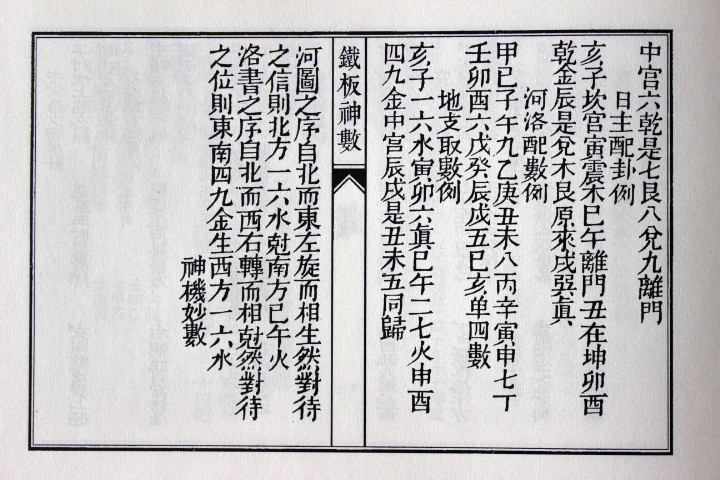 中宫六乾是七艮八兌九離門
日主配卦例
亥子坎宫寅震木巳午離門丑在坤卯酉
乾金辰是兌木艮原來戌巽真
河洛配數例
甲已子午九乙庚丑未八丙辛寅申七丁
壬卯酉六戊癸辰戌五巳亥单四數
地支取數例
亥子一六水寅卯六真巳午二七火申酉
四九金中宫辰戌是丑未五同歸
鐵板神數
河圖之序自北而東左旋而相生然對待
之信則北方一六水尅南方巳午火
洛書之序自北而西右轉而相尅然對待
之位則東南四九金生西方一六水
神機妙數